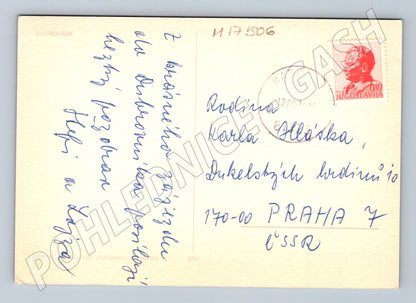 DUBROVNIK
M 17506
Z krásného zájezdu
do Dubrovníka posílají
hezký pozdrav
a
JUGOSLAVIJA
Rodina
Karla Hláska,
Dukelských hrdinů 10
170-00 PRAHA 7
ČSSR
POHLEDNICE - GASH